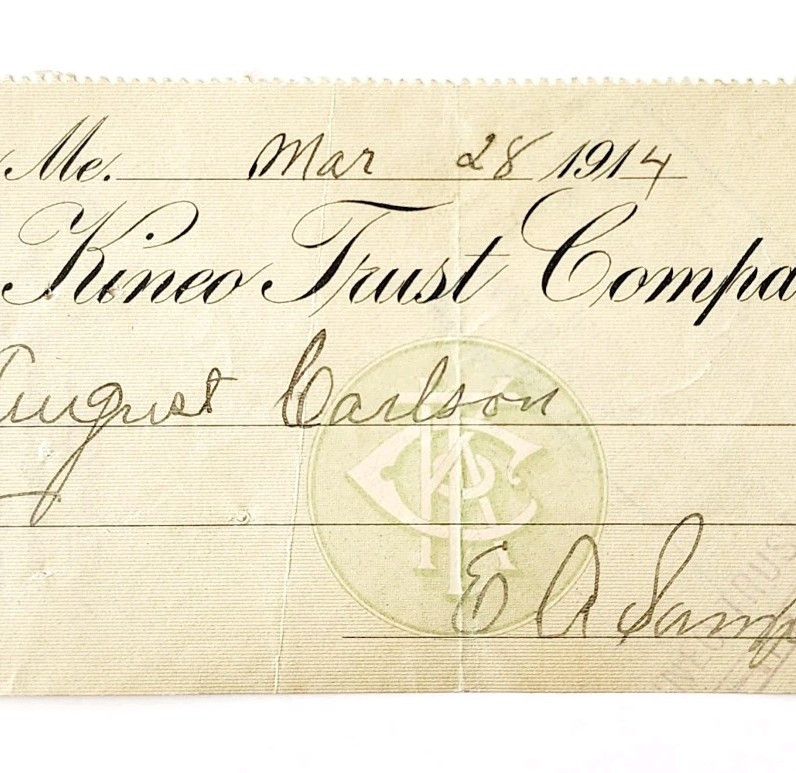 Me. Mar 28 1914
Kineo Trust Compa
August Carlson
E A Samp